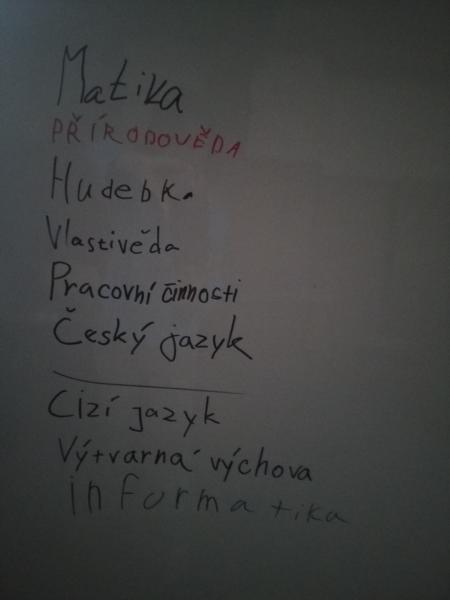 Matika
PŘÍRODOVĚDA
Hudebka
Vlastivěda
Pracovní činnosti
Český jazyk
Cizí jazyk
Výtvarná výchova
informatika